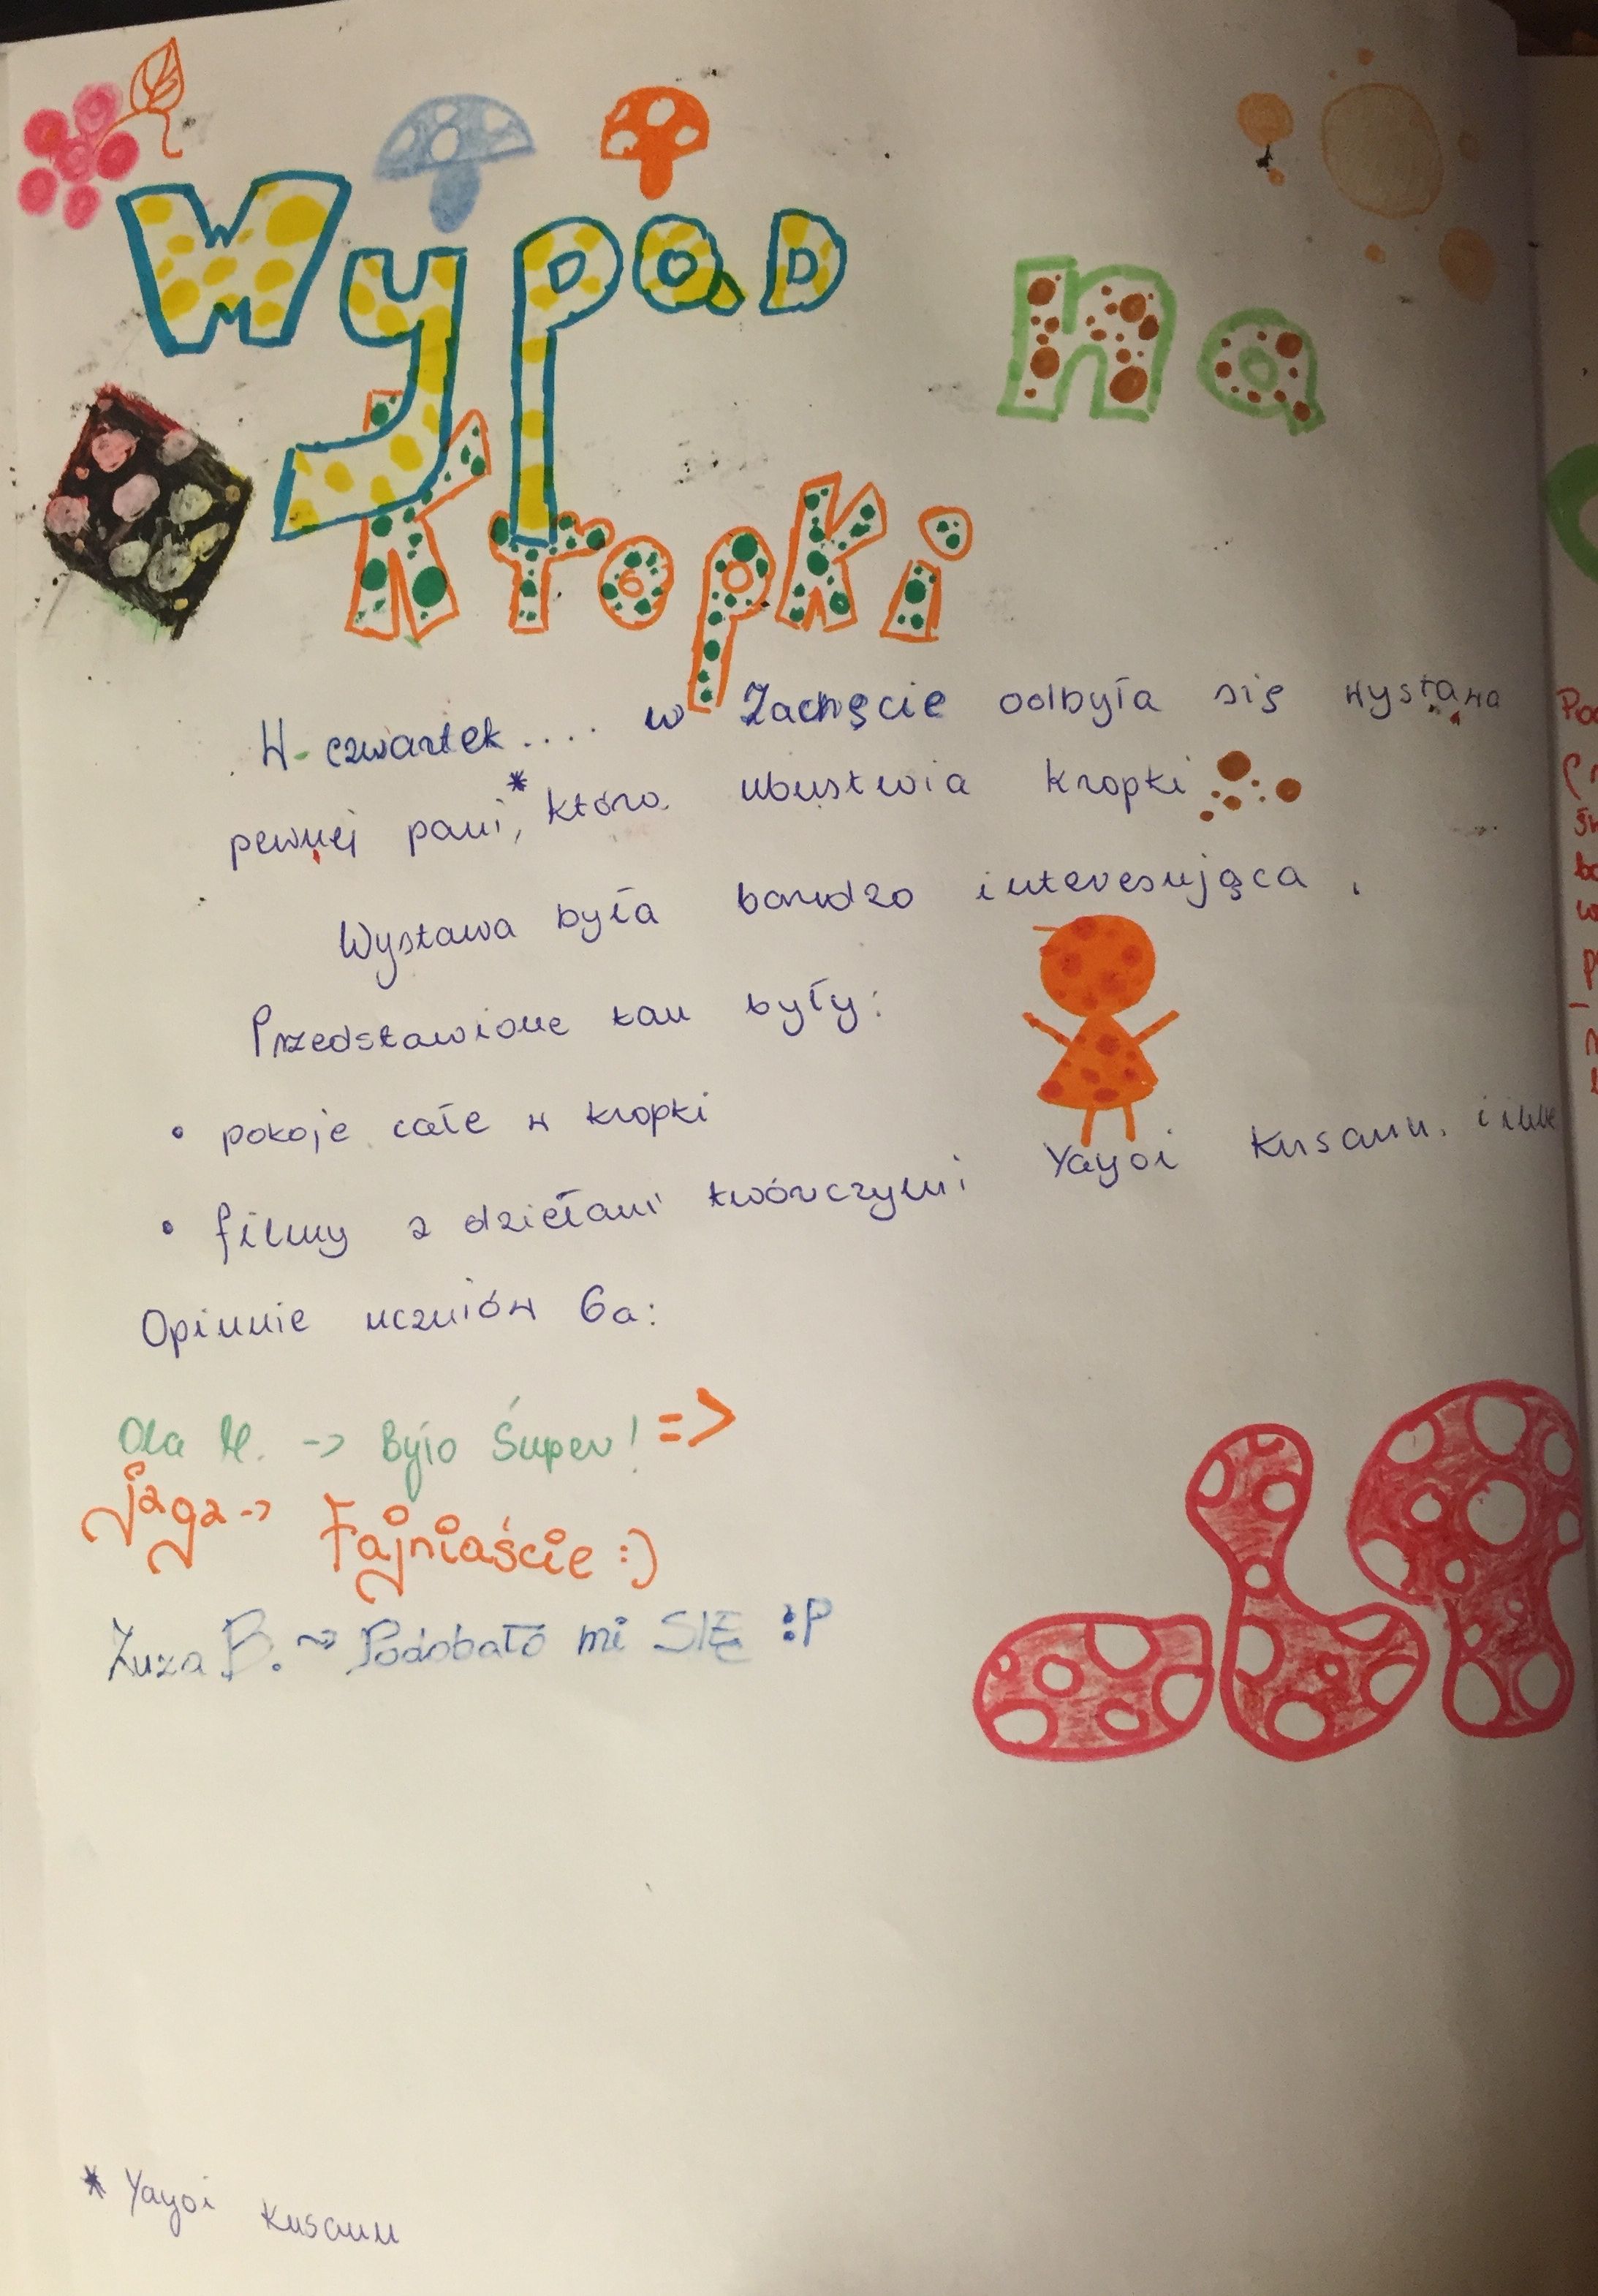 Wypad na
Kropki
W czwartek.... w Zachęcie odbyła się wystawa
pewnej pani,* która ubustwia kropki
Wystawa była bardzo interesująca.
Przedstawione tam były:
• pokoje całe w kropki
• filmy z dziełami twórczymi Yayoi Kusamu. i inne
Opinnie uczniów 6a:
Ola M. -> Było Super! =>
jaga -> Fajniaście :)
Zuza B. ~> Podobało mi SIĘ :P
* Yayoi Kusamu